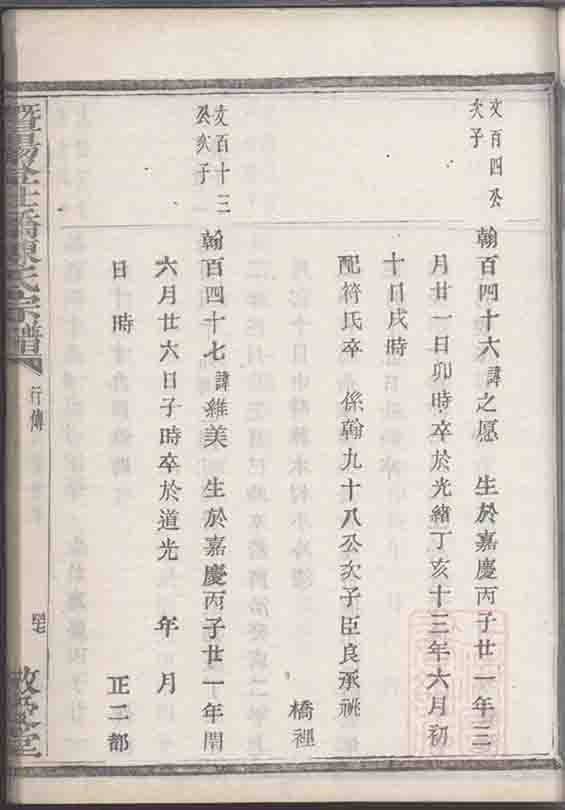 文百四公
次子
翰百四十六諱之愿 生於嘉慶丙子廿一年三
月廿一日卯時卒於光緒丁亥十三年六月初
十日戌時
配符氏卒 係翰九十八公次子臣良承祧
橋裡
文百十三
公次子
翰百四十七諱維美 生於嘉慶丙子廿一年閏
六月廿六日子時卒於道光 年 月
日 時 正二都
陳氏宗譜
行傳